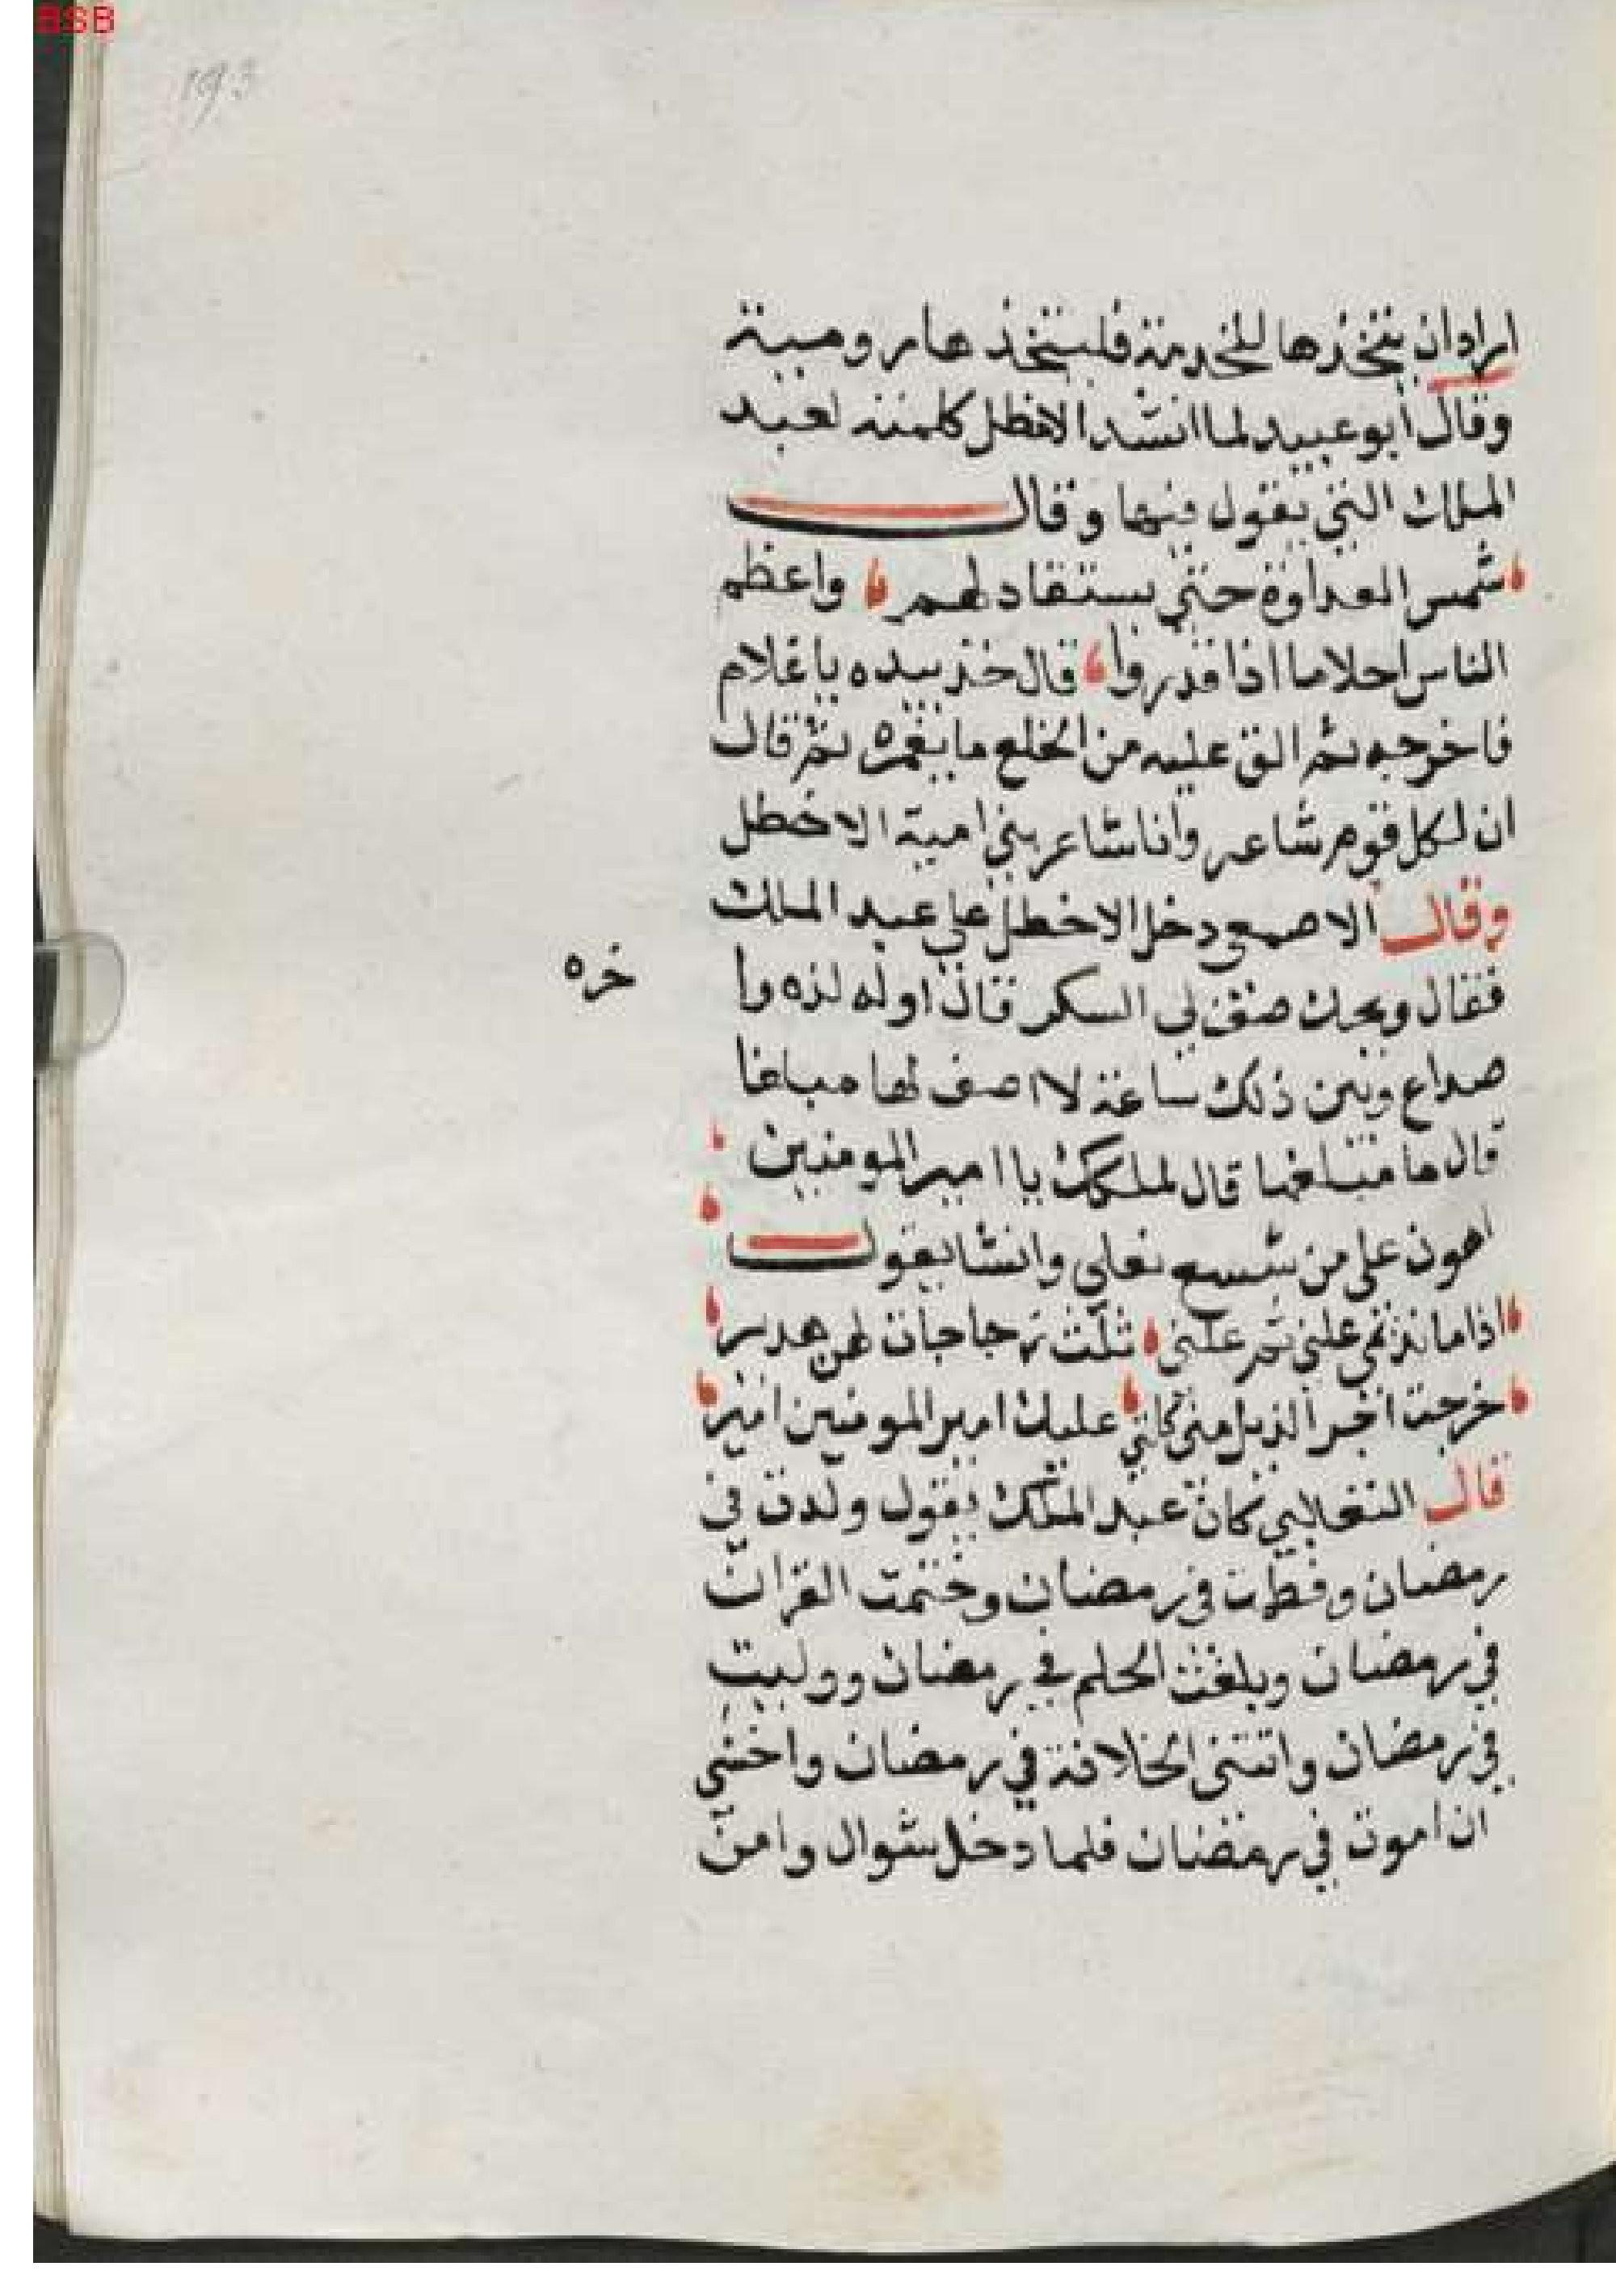 BSB
193
اراد ان يتخذها للخدمة فليتخذها رومية
وقال ابو عبيد لما انشد الاخطل كلمته لعبد
الملك التي يقول فيها وقال
شمس العداوة حتي يستقاد لهم واعظم
الناس احلاما اذا قدروا قال خذ بيده يا غلام
فاخرجه ثم الق عليه من الخلع ما يغمره ثم قال
ان لكل قوم شاعر وانا شاعر بني امية الاخطل
وقال الاصمعي دخل الاخطل علي عبد الملك
فقال ويحك صف لي السكر قال اوله لذه وا
خره
صداع وبين ذلك ساعة لا اصف لها مبلغا
قال ما مبلغها قال لملكك يا امير المومنين
اهون على من شسع نعلي وانشا يقول
اذا ما نديمي علني ثم علني ثلث زجاجات لهن هدير
خرجت اجر الذيل مني كانني عليك امير المومنين امير
قال الثعالبي كان عبد الملك يقول ولدت في
رمضان وفطمت في رمضان وختمت القران
في رمضان وبلغت الحلم في رمضان ووليت
في رمضان واتتني الخلافة في رمضان واخشي
ان اموت في رمضان فلما دخل شوال وامن